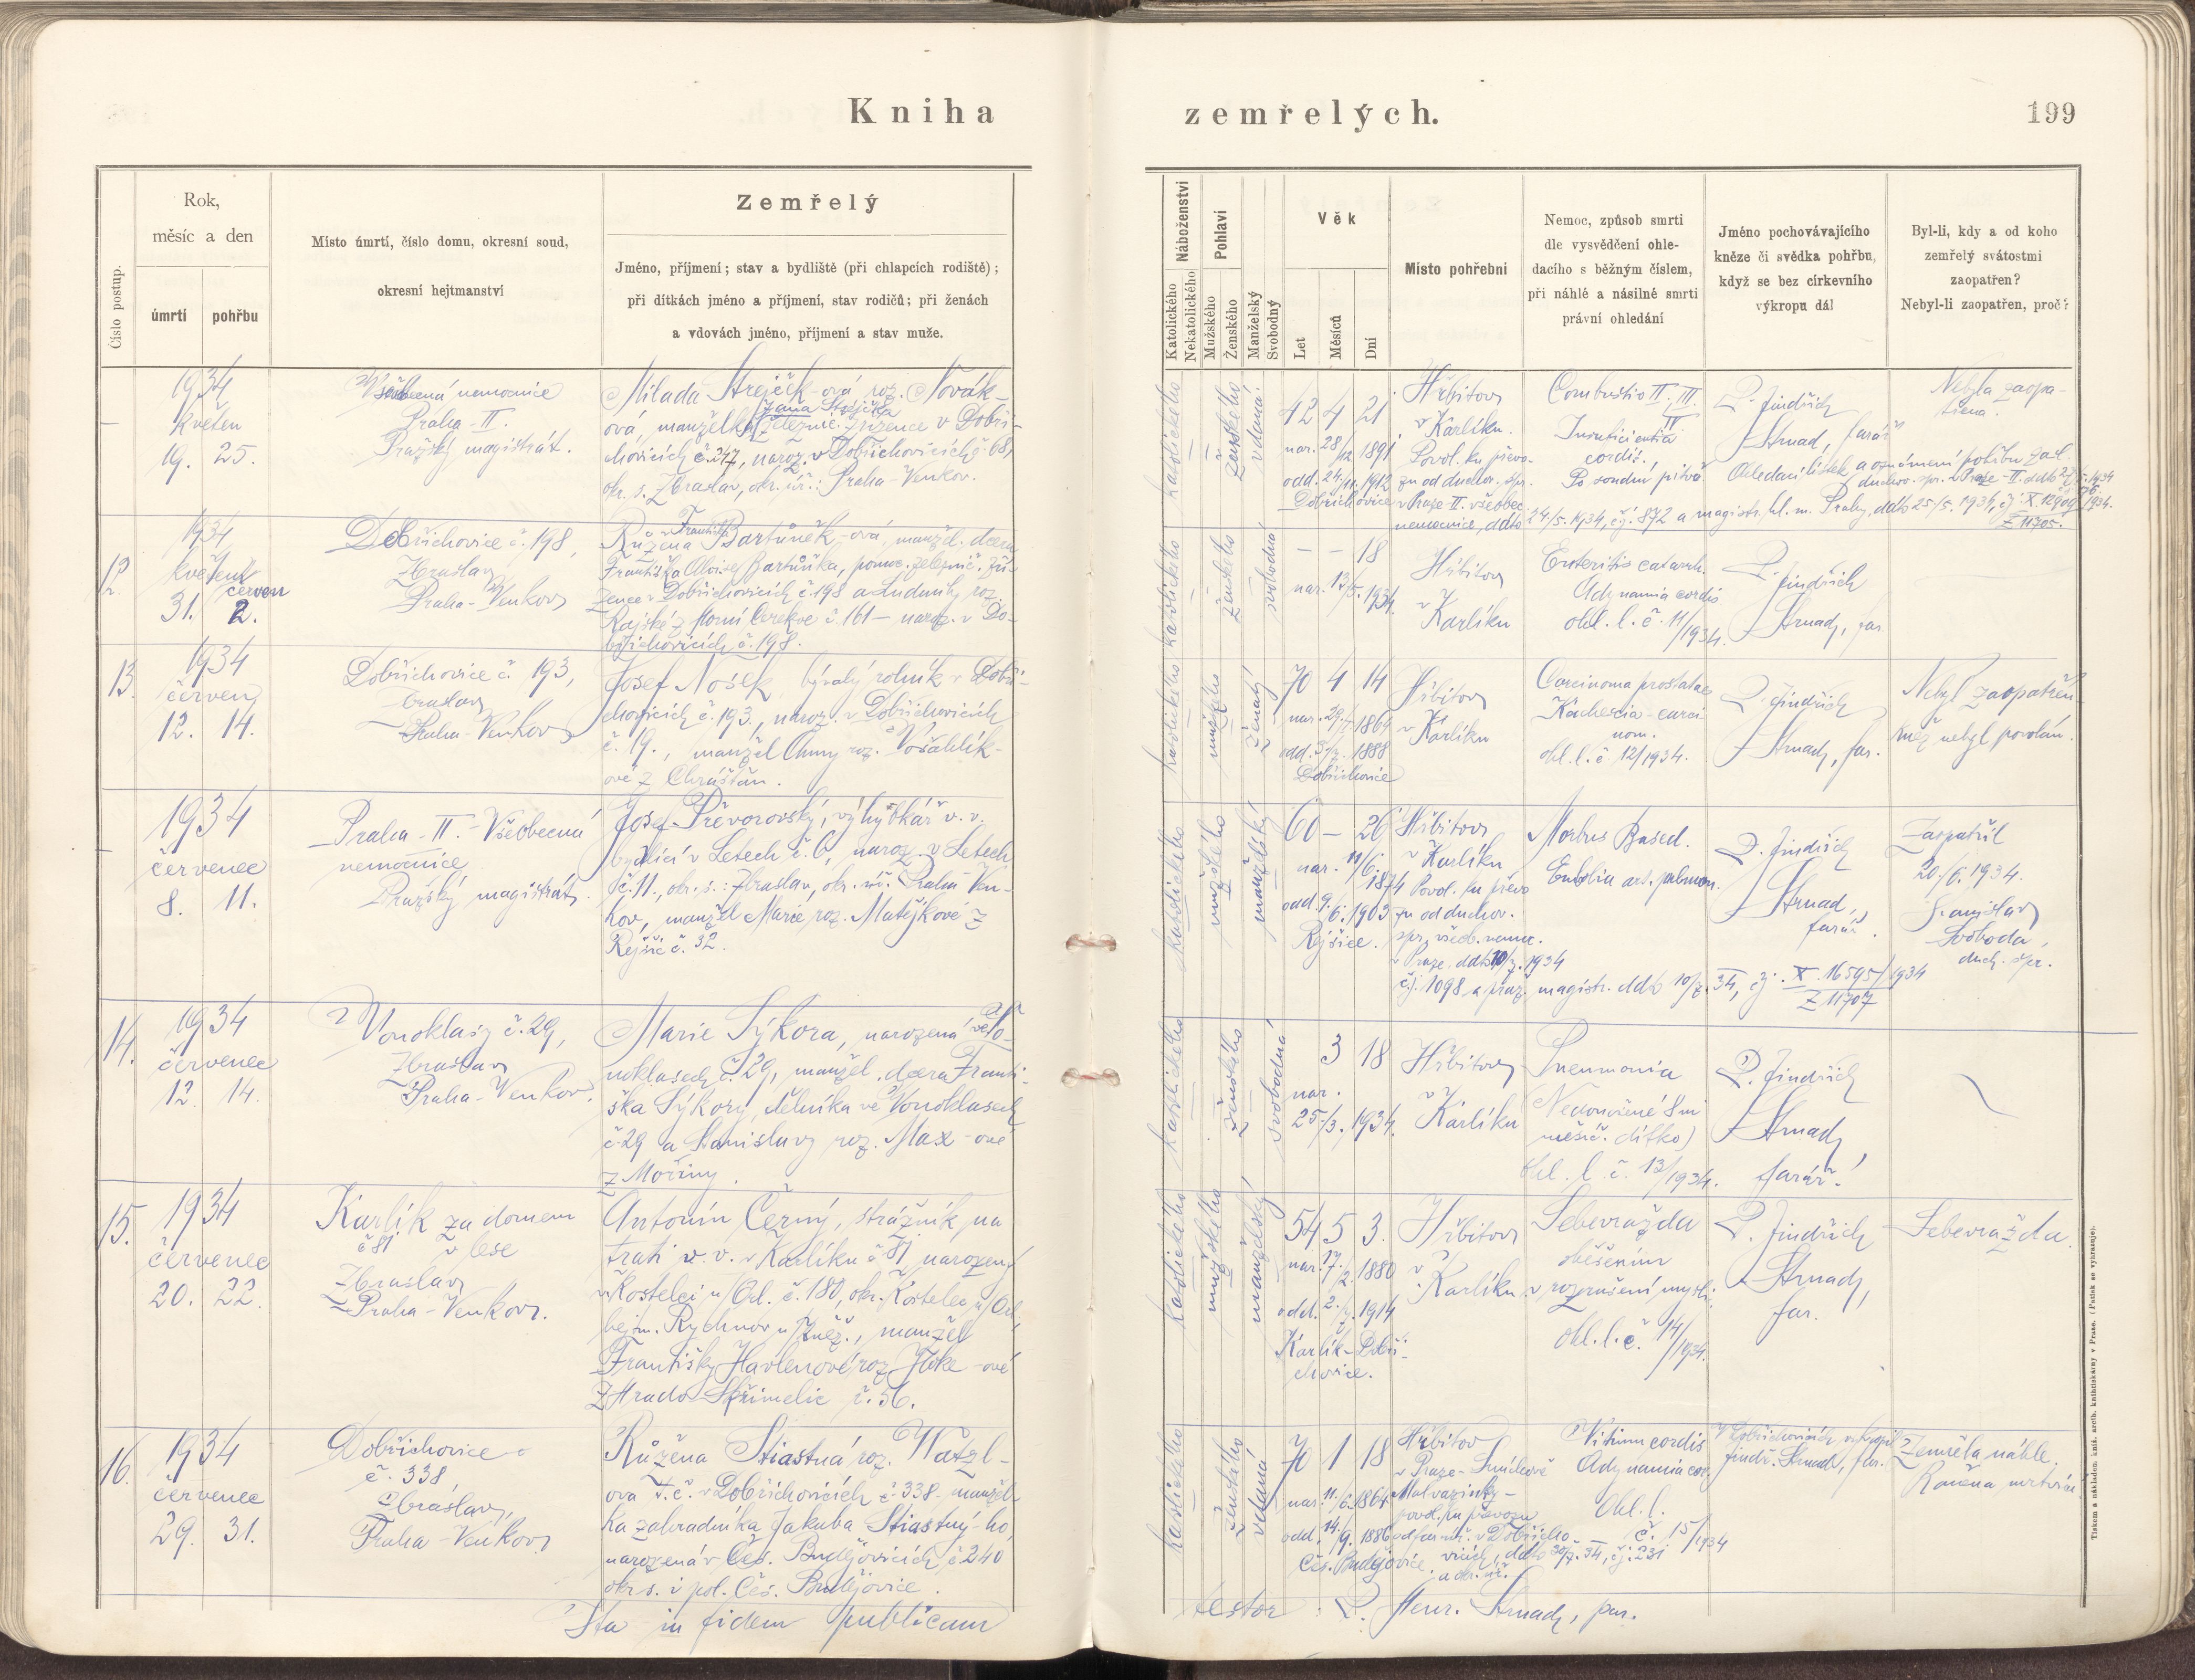 Kniha zemřelých.
199
Číslo postup.
Rok,
měsíc a den
úmrtí
pohřbu
Místo úmrtí, číslo domu, okresní soud,
okresní hejtmanství
Zemřelý
Jméno, příjmení; stav a bydliště (při chlapcích rodiště);
při dítkách jméno a příjmení, stav rodičů; při ženách
a vdovách jméno, příjmení a stav muže.
Náboženství
Katolického
Nekatolického
Pohlaví
Mužského
Ženského
Manželský
Svobodný
Věk
Let
Měsíců
Dní
Místo pohřební
Nemoc, způsob smrti
dle vysvědčení ohle-
dacího s běžným číslem,
při náhlé a násilné smrti
právní ohledání
Jméno pochovávajícího
kněze či svědka pohřbu,
když se bez církevního
výkropu dál
Byl-li, kdy a od koho
zemřelý svátostmi
zaopatřen?
Nebyl-li zaopatřen, proč?
–
1934
květen
19. 25.
Všeobecná nemocnice
Praha-II.
Pražský magistrát.
Milada Strejček-ová roz. Novák-
Jana Strejčka
ová, manželka železnič. zřízence v Dobři-
chovicích č. 247, naroz. v Dobřichovicích č. 68,
okr. s. Zbraslav, okr. úř.: Praha-Venkov.
katolického
ženského
vdaná
42 4 21
nar. 28/12 1891
odd. 24/11. 1912
Dobřichovice
Hřbitov
v Karlíku.
Povol. ku převo-
zu od duchov. spr.
v Praze II. všeobec.
nemocnice, ddto 24/5. 1934, č.j. 872 a magistr. hl. m. Prahy, ddto 25/5. 1934, čj. X. 12909/1934.
Z 11705.
Combustio II. III.
Insuficientia
cordis.
Po soudní pitvě.
P. Jindřich
Strnad, farář
Ohledací lístek a oznámení pohřbu zasl.
duchov. spr. v Praze-II.
Nebyla zaopa-
třena.
12.
1934
květen červen
31. 2.
Dobřichovice č. 198,
Zbraslav
Praha-Venkov
Františka
Růžena Bartůněk-ová, manžel. dcera
Františka Aloise Bartůňka, pomoc. železnič. zří-
zence v Dobřichovicích č. 198 a Ludmily roz.
Rajské z Horní Cerekve č. 161 – naroz. v Do-
břichovicích č. 198.
katolického
ženského
svobodná
– – 18
nar. 13/5. 1934.
Hřbitov
v
Karlíku
Enteritis catarrh.
Adynamia cordis
ohl. l. č. 11/1934.
P. Jindřich
Strnad, far.
13.
1934
červen
12. 14.
Dobřichovice č. 193,
Zbraslav
Praha-Venkov
Josef Nosek, bývalý rolník v Dobři-
chovicích č. 193., naroz. v Dobřichovicích
č. 19., manžel Anny roz. Vošahlík-
ové z Chrášťan.
katolického
mužského
ženatý
70 4 14
1864
1888
Dobřichovice
Hřbitov
v
Karlíku
Carcinoma prostatae
Kachexia-carci-
nom.
ohl. l. č. 12/1934.
P. Jindřich
Strnad, far.
Nebyl zaopatřen
kněz nebyl povolán.
–
1934
červenec
8. 11.
Praha-II.-Všeobecná
nemocnice
Pražský magistrát
Josef Převorovský, výhybkář v. v.
bydlící v Letech č. 6, naroz. v Letech
č. 11., okr. s.: Zbraslav, okr. úř. Praha Ven-
kov, manžel Marie roz. Matějkové z
Rejšic č. 32.
katolického
mužského
manželský
60 – 26
nar. 11/6. 1874
odd. 9./6. 1903
Rejšice.
Hřbitov
v Karlíku
Povol. ku převo
zu od duchov.
spr. všeob. nemc.
v Praze, ddto 10/7. 1934
č.j. 1098 a praž. magistr. ddto 10/7. 34, čj. X. 16595/1934
Z 11707
Morbus Based.
Embolia art. pulmon.
P. Jindřich
Strnad,
farář.
Zaopatřil
20./6. 1934.
Stanislav
Svoboda,
duch. spr.
14.
1934
červenec
12. 14.
Vonoklasy č. 29,
Zbraslav
Praha-Venkov.
Marie Sýkora, narozená ve Vo-
noklasech č. 29, manžel. dcera Franti-
ška Sýkory, dělníka ve Vonoklasech
č. 29 a Stanislavy roz. Max-ové
z Mořiny.
katolického
ženského
svobodná
3 18
nar.
25./3. 1934.
Hřbitov
v
Karlíku
Pneumonia
(Nedonošené 8mi
měsíč. dítko)
ohl. l. č. 13/1934.
P. Jindřich
Strnad,
farář.
15.
1934
červenec
20. 22.
Karlík za domem
č 81 v lese
Zbraslav
Praha-Venkov.
Antonín Černý, strážník na
trati v. v. v Karlíku č. 81, narozený
v Kostelci n/Orl. č. 180, okr. Kostelec n/Orl,
hejtm. Rychnov n/Kněž., manžel
Františky Havlenové roz. -ové
z Hrado-Střimelic č. 56.
katolického
mužského
manželský
54 5 3.
nar. 17./2. 1880
odd. 2./7. 1914
Karlík-Dobři-
chovice.
Hřbitov
v
Karlíku
Sebevražda
oběšením
v rozrušení mysli.
ohl. l. č. 14/1934.
P. Jindřich
Strnad,
far.
Sebevražda.
16.
1934
červenec
29. 31.
Dobřichovice
č. 338,
Zbraslav,
Praha-Venkov.
Růžena Stiastná roz. Watzl-
ova t. č. v Dobřichovicích č. 338. manžel-
ka zahradníka Jakuba Stiastný-ho,
narozená v Čes. Budějovicích č. 240
okr. s. i pol. Čes. Budějovice.
katolického
ženského
vdaná
70 1 18
nar. 11./6. 1864
odd. 14./9. 1886
Čes. Budějovice.
Hřbitov
v Praze-Smíchově
Malvazinky-
povol. ku převozu
od farního úř. v Dobřicho-
vicích, ddto 30/7. 34, č.j. 231
Vitium cordis
Adynamia cor.
Ohl. l.
č. 15/1934
V Dobřichovicích vykropil
Jindř. Strnad, far.
Zemřela náhle.
Raněna mrtvicí.
Ita in fidem publicam
testor P. Henr. Strnad, par.
Tiskem a nákladem knih. arcib. knihtiskárny v Praze. (Patisk se vyhrazuje).